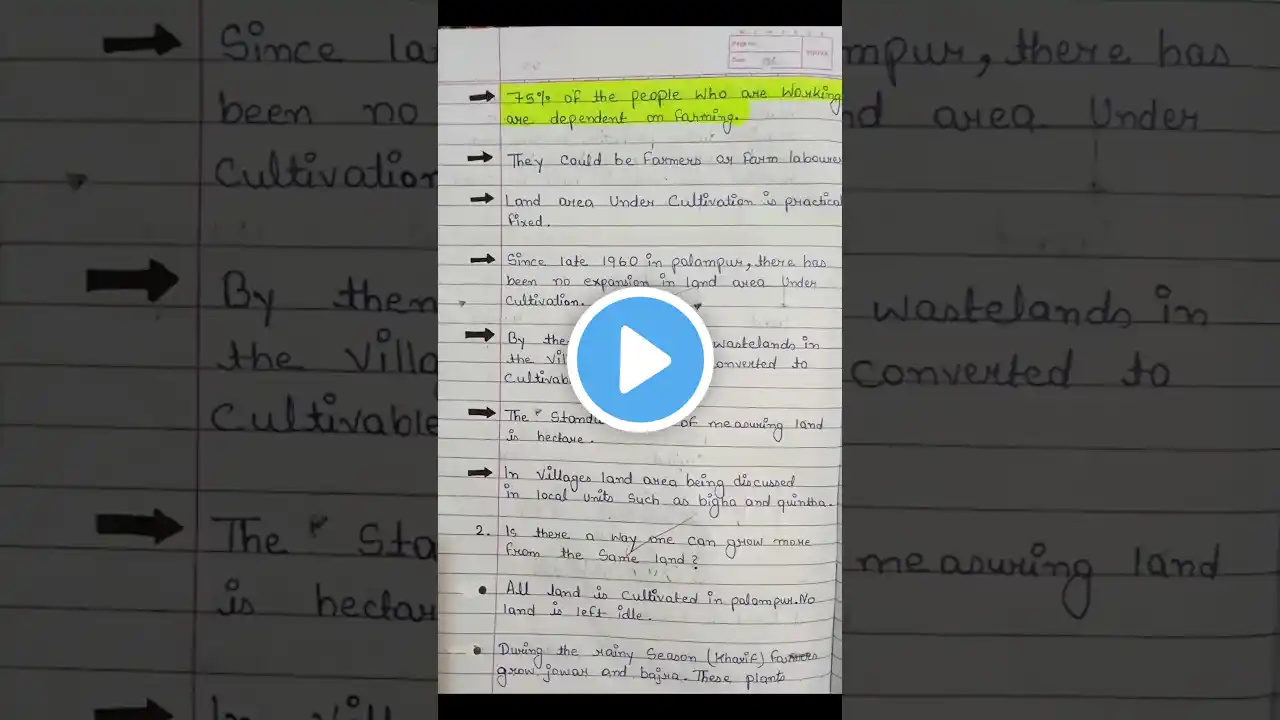 75% of the people who are working
are dependent on farming.
They could be farmers or farm laboure
Land area under cultivation is practical
fixed.
Since late 1960 in palampur, there has
been no expansion in land area under
cultivation.
By the wastelands in
the vil converted to
cultivab
The Stand of measuring land
is hectare.
In villages land area being discussed
in local units such as bigha and quintha.
2. Is there a way one can grow more
from the same land?
All land is cultivated in palampur. No
land is left idle.
During the rainy season (kharif) farmers
grow jowar and bajra. These plants